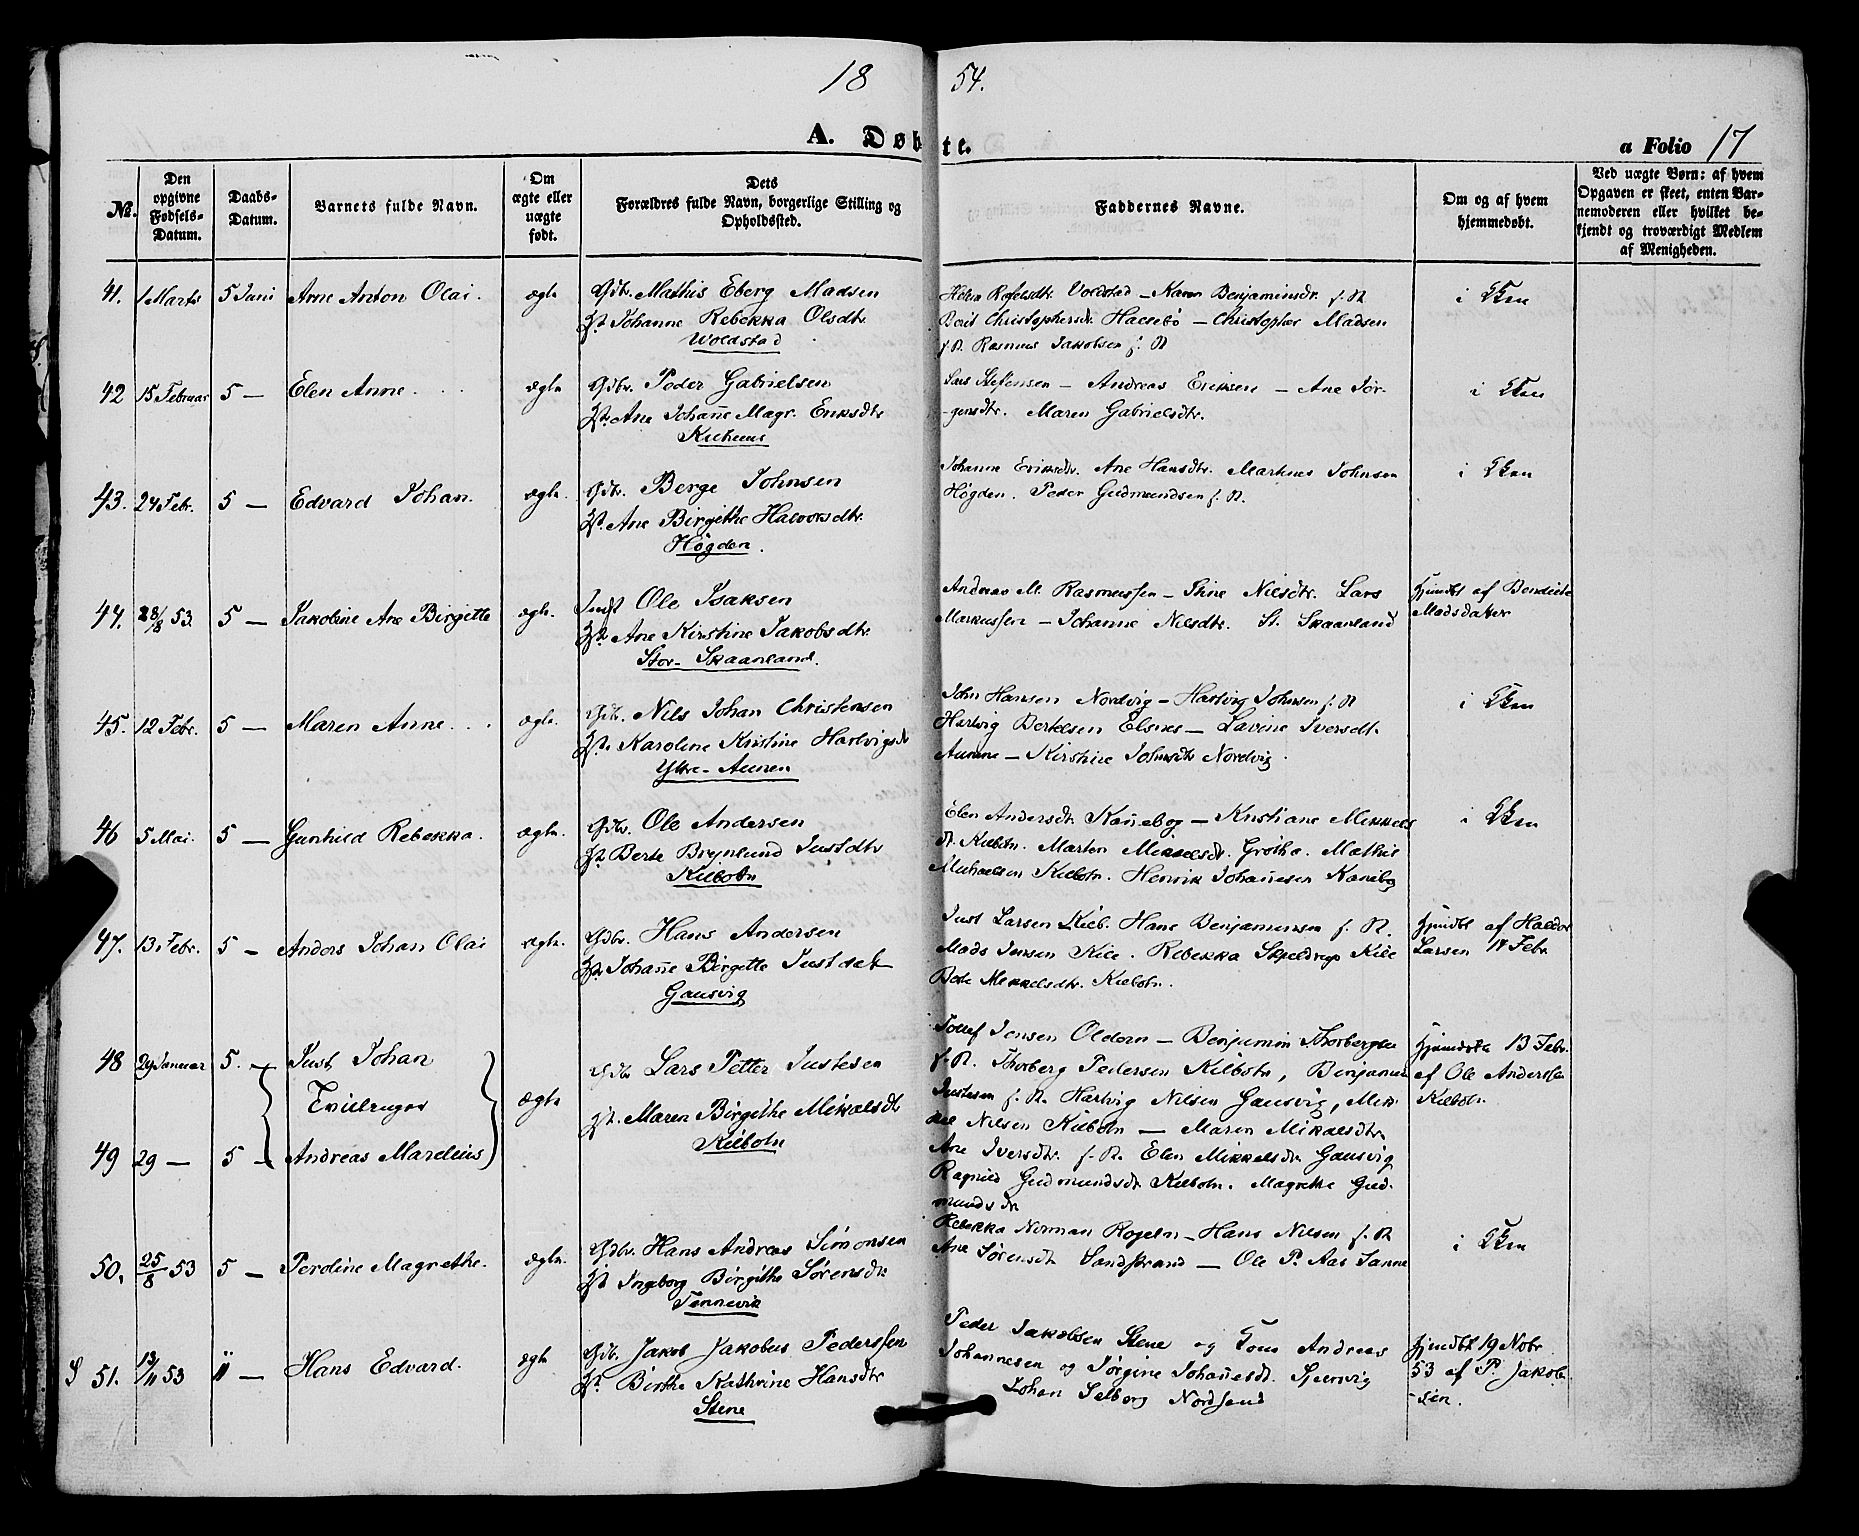 18 54.
A. Døbte. a Folio 17
No. Den opgivne Fødsels-Datum. Daabs-Datum. Barnets fulde Navn. Om ægte eller uægte født. Dets Forældres fulde Navn, borgerlige Stilling og Opholdssted. Faddernes Navne. Om og af hvem hjemmedøbt. Ved uægte Børn: af hvem Opgaven er skeet, enten Barnemoderen eller hvilket bekjendt og troværdigt Medlem af Menigheden.
41. 1 Marts 5 Juni Arne Anton Olai. ægte Gdbr. Mathis Eberg Madsen
Johanne Rebekka Olsdtr.
Woldstad
Rofelsdtr. Voldstad — Karen Benjaminsdr. f. N.
Berit Christophersdr. — Christopher Madsen
f. N. Rasmus Jakobsen f. N
i Kken
42 15 Februar 5 — Elen Anne. ægte Gdbr. Peder Gabrielsen
Ane Johanne Magr. Eriksdtr
Lars Steffensen — Andreas Eriksen — Ane Jør-
-gensdtr. Maren Gabrielsdtr.
i Kken
43. 24 Febr. 5 — Edvard Johan. ægte. Gdbr. Berge Johnsen
Ane Birgithe Halvorsdtr.
Høgden.
Johanne Eriksdtr. Ane Hansdtr. Martines Johnsen
Høgden. Peder Gudmundsen f. N.
i Kken
44. 28/8 53. 5 — Jakoline Ane Birgitte ægte. Indst Ole Isaksen
Ane Kirstine Jakobsdtr.
Stor-Skaanland.
Andreas M. Rasmussen — Stine Nilsdtr. Lars
Markussen — Johanne Nilsdtr. St. Skaanland
Hjmdbt af Bendicte
Madsdatter
45. 12 Febr. 5 — Maren Anne. ægte. Gdbr. Nils Johan Christensen
Karoline Kristine Hartvigsdr
Ytre-Aunen
John Hansen Nordvig — Hartvig Johnsen f. N
Hartvig Bertelsen Elsnes — Lavine Iversdt.
Kirstine Johnsdtr Nordvig.
i Kken
46 5 Mai. 5 — Gunhild Rebekka. ægte. Gdbr. Ole Andersen
Berte Brynlund Justdtr
Kilbotn
Elen Andersdt. Kannebog — Kristiane Mikkels
dt. Kilbotn. Marten Mikkelsdt. Grøtha. Mathis
Michaelsen Kilbotn. Henrik Johannesen Kanebog
i Kken
47. 13 Febr. 5 — Anders Johan Olai ægte. Gdbr. Hans Andersen
Johanne Birgitte Justdat
Gausvig
Just Larsen Kilb. Hans Benjaminsen f. N.
Mads Jensen Kile. Rebekka Skjeldrup Kile
Berte Mikkelsdtr. Kilbotn.
Hjmdbt af Haldor
Larsen 14 Febr.
48 29 Januar 5 — Just Johan
Tvillinger
49 29 — 5 — Andreas Marelius
ægte Gdbr Lars Petter Justesen
Maren Birgithe Mikalsdtr
Kilbotn
Tollef Jensen Oldern — Benjamin Thorbergsen
f. N. Thorberg Pedersen Kilbotn, Benjamin
Justesen f. N. Hartvig Nilsen Gausvig, Mik-
kel Nilsen Kilbotn — Maren Mikalsdtr.
Ane Iversdtr. f. N. Elen Mikkelsdtr. Gausvig
Ragnild Gudmundsdt. Kilbotn. Magrethe Gud-
munds dr
Hjmdøbte 13 Febr.
af Ole Anderssen
Kilbotn
50. 25/8 53 5 — Perdine Magrethe. ægte. Gdbr. Hans Andreas Simonsen
Ingeborg Birgithe Sørensdtr
Tennevik
Rebekka Norman Rogeln — Hans Nilsen f. N
Ane Sørensdt. Sandstrand — Ole P. Aas
i Kken
S 51. 13/11 53 11 — Hans Edvard. ægte Gdbr. Jakob Jakobus Pederssen
Birthe Kathrine Hansdtr
Stene
Peder Jakobsen Stene og Andreas
Johannesen og Jørgine Johannesdt.
Johan Selberg
Hjmdbt 19 Nobr
53 af P. Jakob-
-sen.